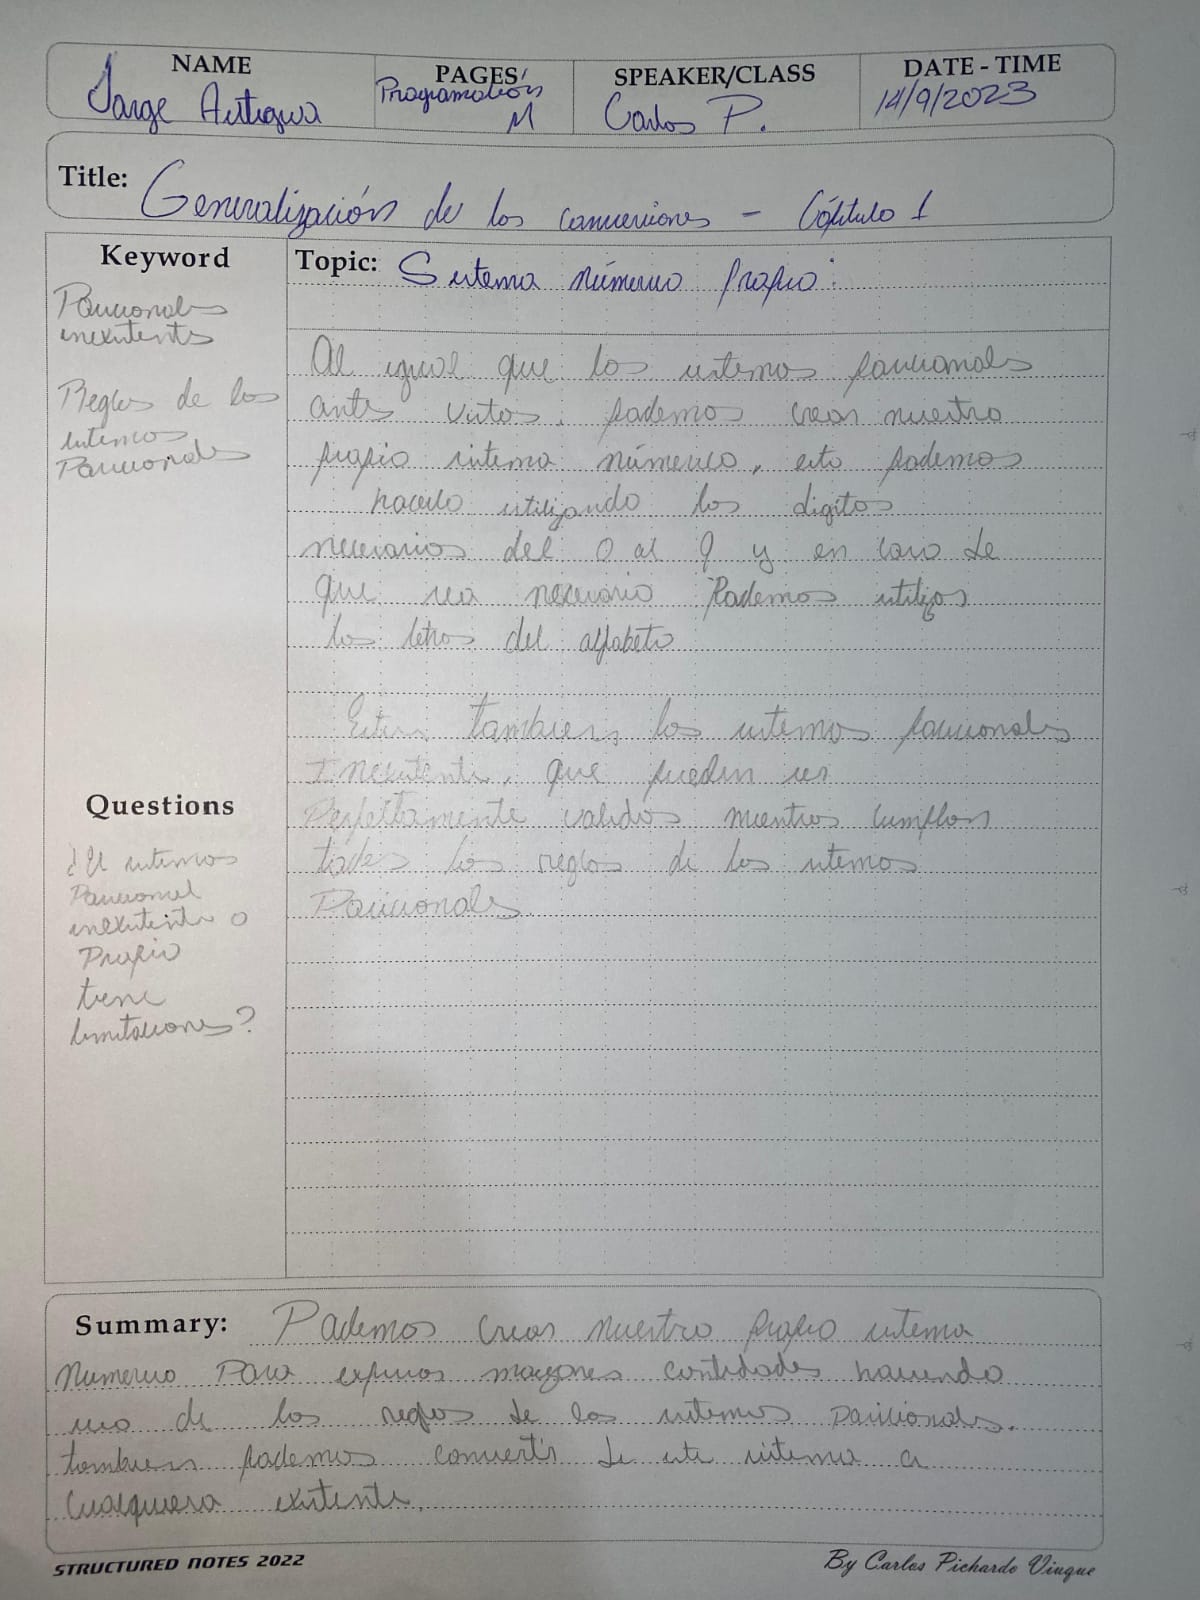 NAME
Jorge Antigua
PAGES
Programation
M
SPEAKER/CLASS
Carlos P.
DATE - TIME
14/9/2023
Title: Generalización de los conversiones - Cápitulo 1
Keyword
Posicionales
inexistentes
Reglas de los
sistemas
Posicionales
Topic: Sistema númerico propio:
Al igual que los sistemas posicionales
antes vistos, podemos crear nuestro
propio sistema númerico, esto podemos
hacerlo utilizando los digitos
necesarios del 0 al 9 y en caso de
que sea necesario Podemos utilizar
las letras del alfabeto
Existen tambien, los sistemas posicionales
Inexistente, que pueden ser
Perfectamente validos mientras cumplan
todas las reglas de los sistemas
Posicionales
Questions
sistemas
Posicional
inexistente o
Propio
tiene
limitaciones?
Summary: Podemos crear nuestro propio sistema
númerico Para expresar mayores cantidades haciendo
uso de las reglas de los sistemas posicionales.
tambien podemos convertir de este sistema a
cualquiera existente.
STRUCTURED NOTES 2022
By Carlos Pichardo Viuque